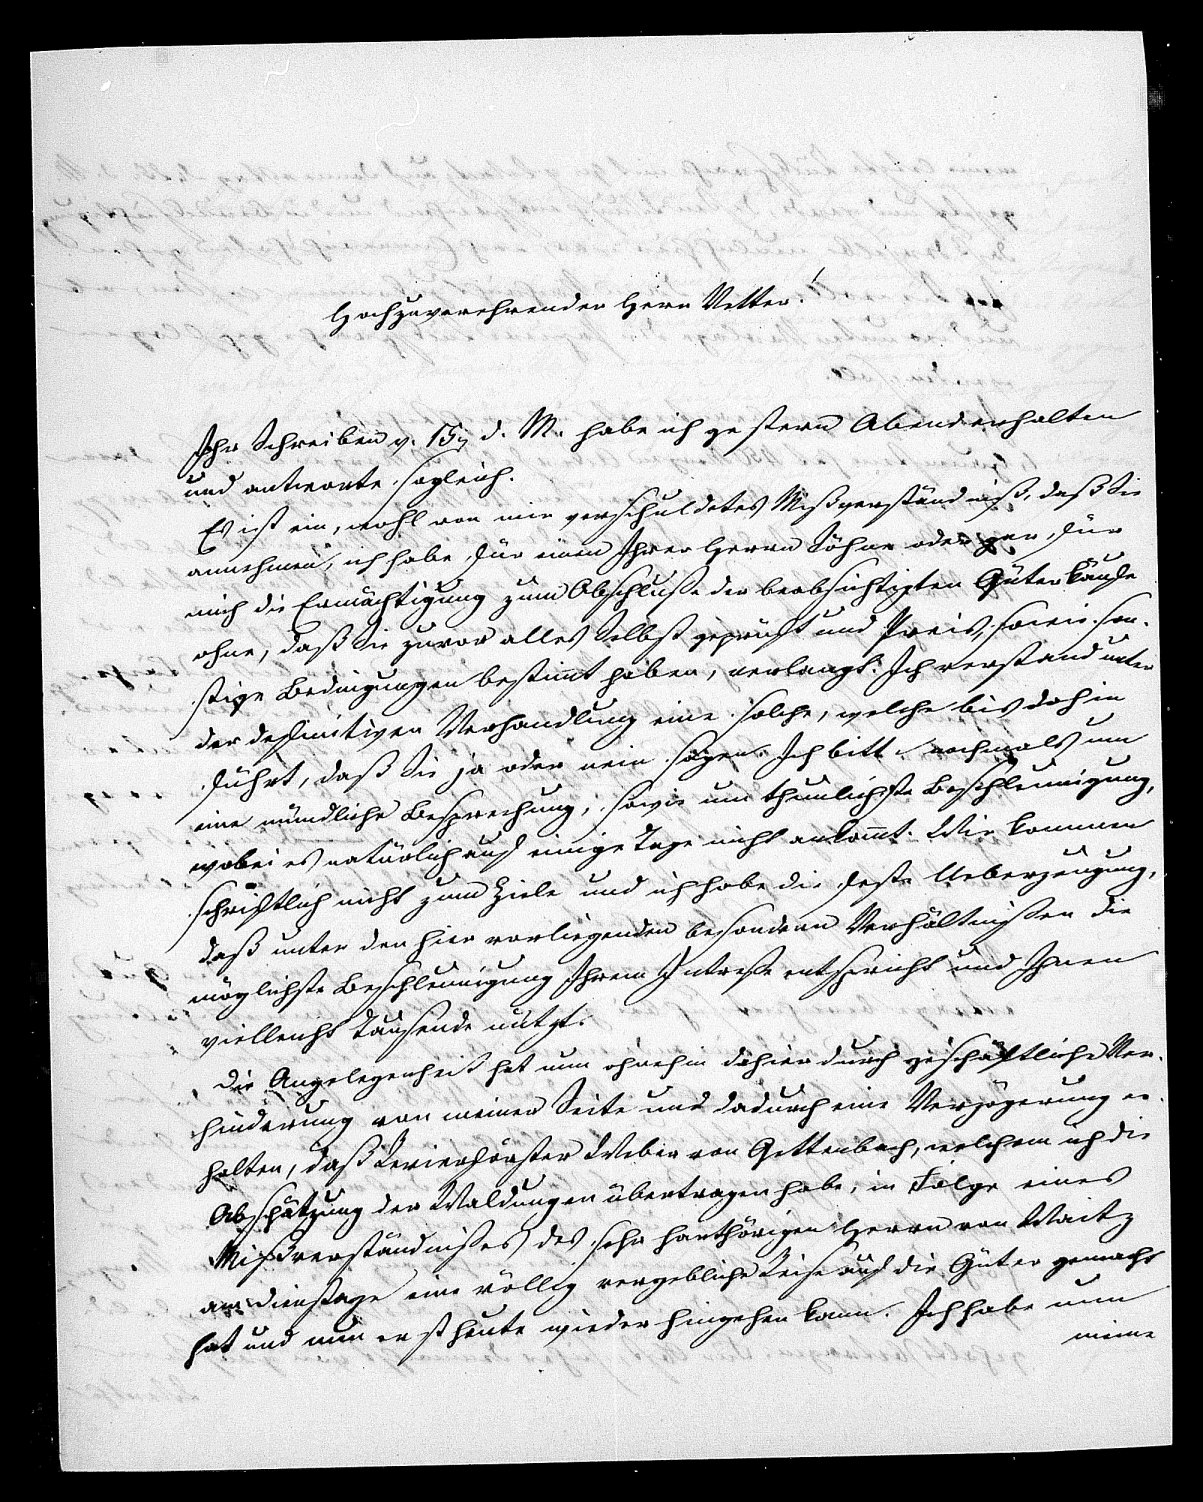 Hochzuverehrender Herr Vetter!
Ihr Schreiben v. 15. d. M. habe ich gestern Abend erhalten
und antworte sogleich.
Es ist ein, wohl von mir verschuldetes Mißverständniß, daß Sie
annehmen, ich habe für einen Ihrer Herrn Söhne oder gar für
mich die Ermächtigung zum Abschluße der beabsichtigten Güterkäufe
ohne, daß Sie zuvor alles Selbst geprüft und Preis, sowie son-
stige Bedingungen bestimmt haben, verlangt. Ich verstand unter
der definitiven Verhandlung eine solche, welche bis dahin
führt, daß Sie ja oder nein sagen. Ich bitte nochmals um
eine mündliche Besprechung, sowie um thunlichste Beschleunigung,
wobei es natürlich auf einige Tage nicht ankommt. Wir kommen
schriftlich nicht zum Ziele und ich habe die feste Ueberzeugung,
daß unter den hier vorliegenden besondern Verhältnißen die
möglichste Beschleunigung Ihrem Intreße entspricht und Ihnen
vielleicht Tausende nützt.
Die Angelegenheit hat nun ohnehin dahier durch geschäftliche Ver-
hinderung von meiner Seite und dadurch eine Verzögerung er-
halten, daß Revierförster Weber von Gettenbach, welchem ich die
Abschätzung der Waldungen übertragen habe, in Folge eines
Mißverständnißes des sehr harthörigen Herrn von Waitz
am Dienstage eine völlig vergebliche Reise auf die Güter gemacht
hat und nun erst heute wieder hingehen kann. Ich habe nun
meine